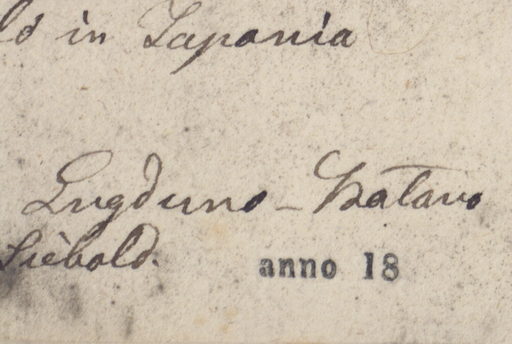 ld in Japonia
Lugduno-Batavo
Siebold.
anno 18